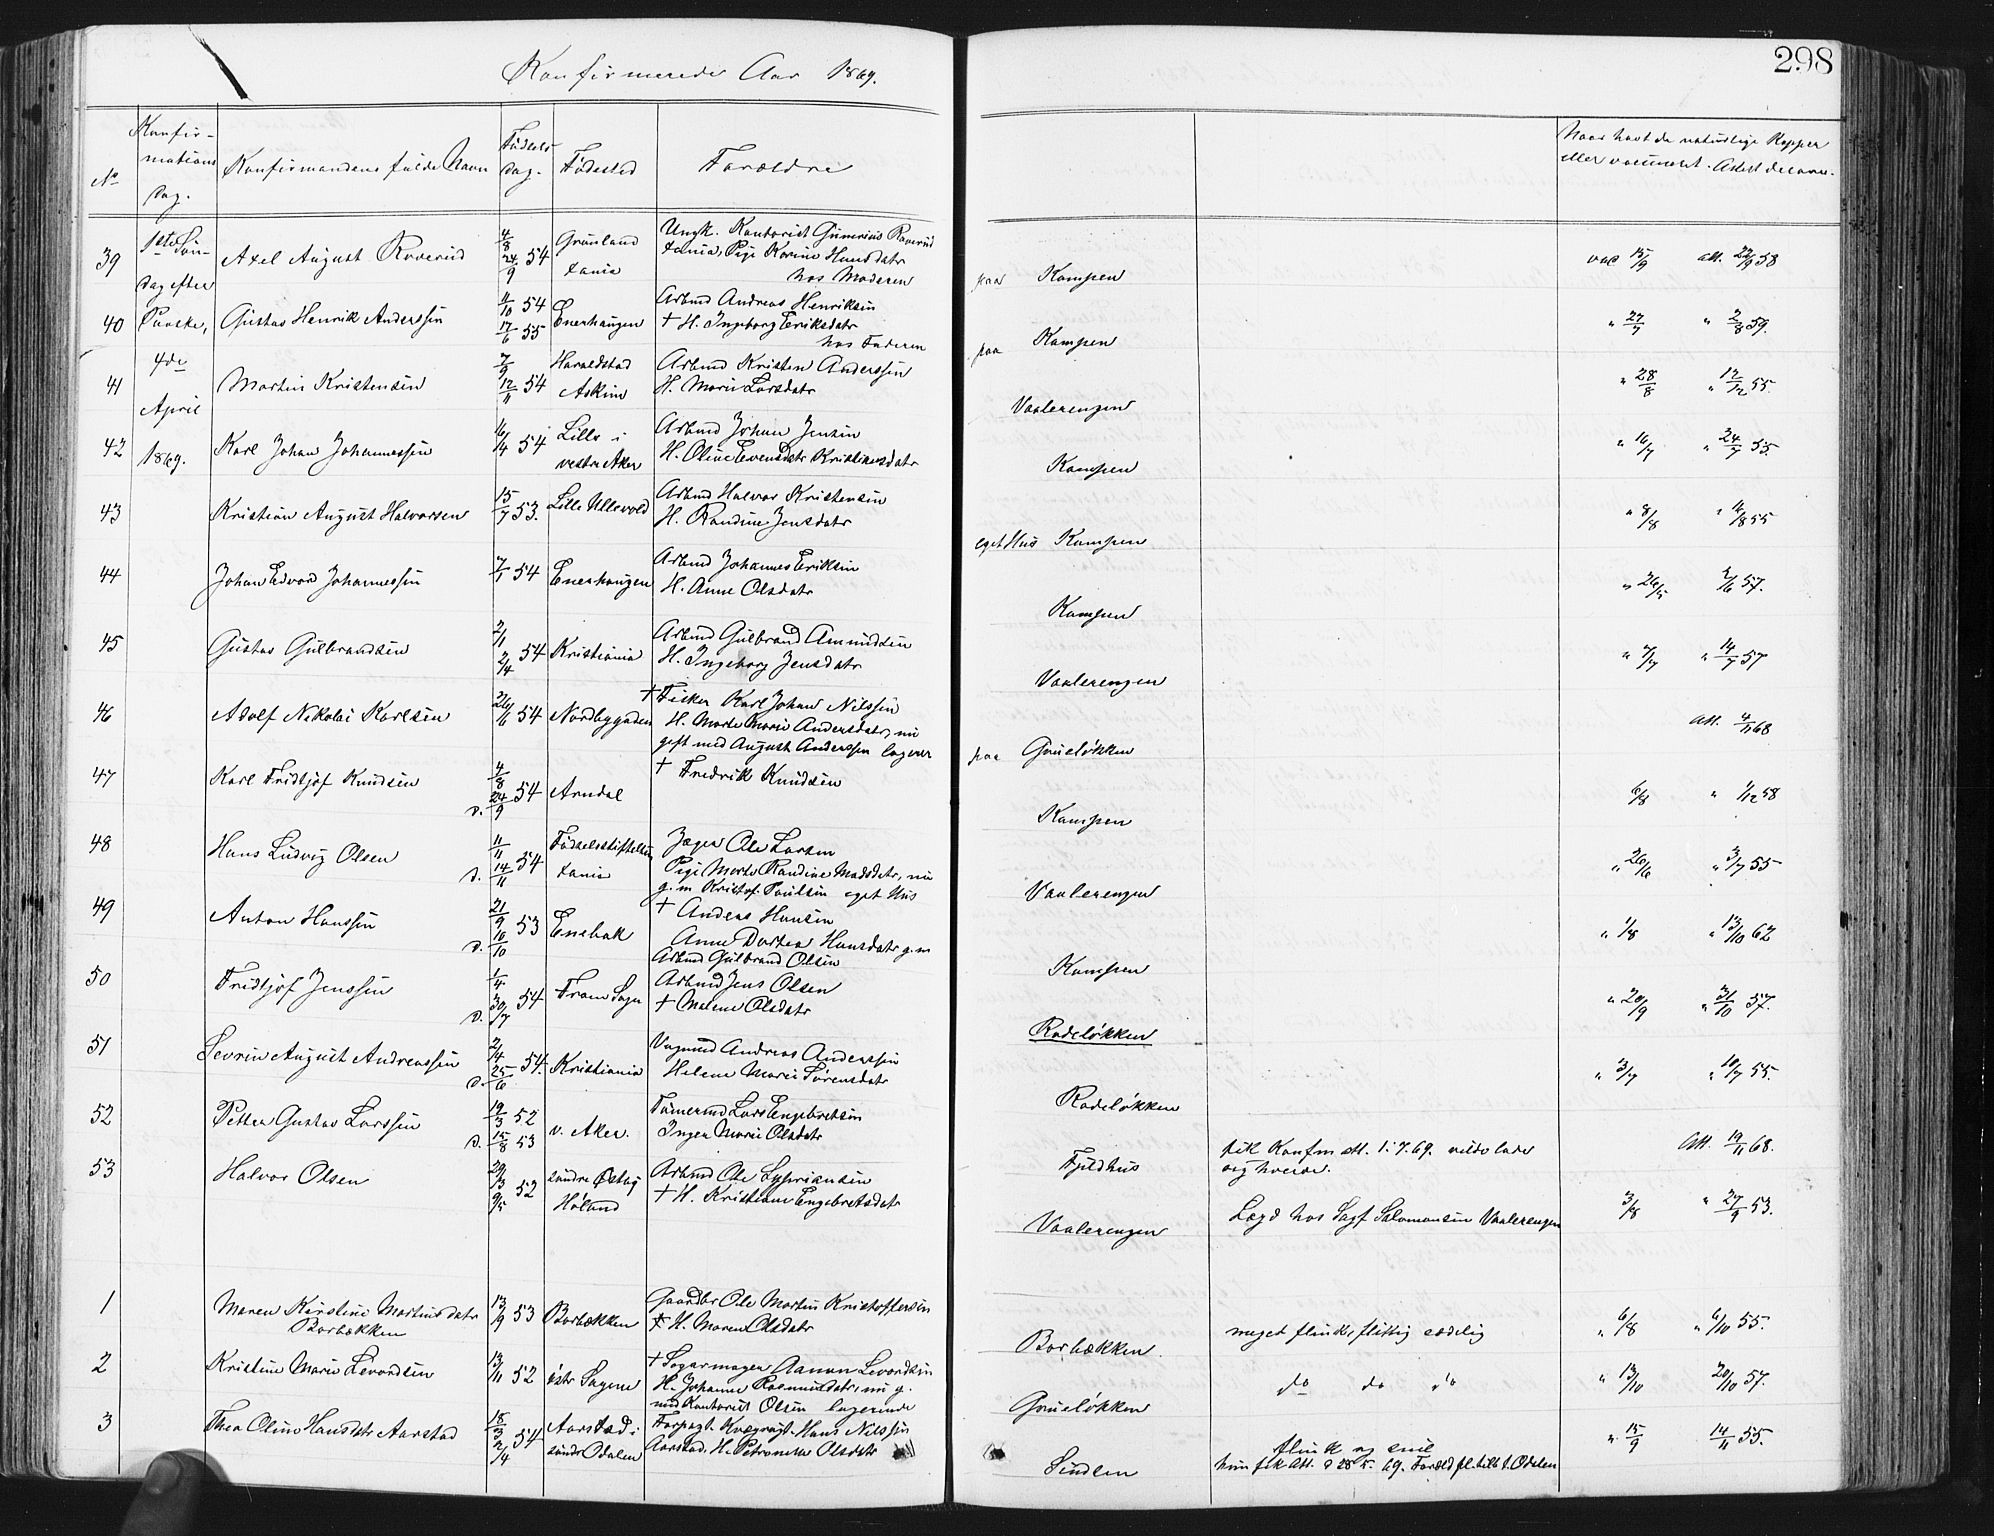 298
Konfirmerede Aar 1869.
No
Konfir-
mations
dag.
Konfirmandens fulde Navn
Fødsels
dag.
Fødested
Forældre
Naar havt de naturlige Kopper
eller vaccineret. Attest
39 1ste Søn- Axel August Roverud 4/8 24/9 54 Grønland Ungk. Kontorist Gunerius Roverud
Pige Karine Hansdatr
hos Moderen
paa Kampen vac 15/9 att. 22/9 58
dag efter
40 Paaske, Gustav Henrik Anderssen 11/10 54 17/6 55 Enerhaugen Arbmd Andreas Henriksen
† H. Ingeborg Eriksdatr
hos Faderen
paa Kampen " 27/7 " 2/8 59.
4de
41 April Martin Kristensen 7/9 12/11 54 Haraldstad Askim Arbmd Kristen Anderssen
H. Marie Larsdatr
Vaalerengen " 28/8 " 12/12 55.
42 1869. Karl Johan Johannessen 16/4 54 Lille i vestre Aker Arbmd Johan Jensen
H. Oline Evensdatr
Kampen " 16/7 " 24/7 55.
43 Kristian August Halvorsen 15/7 53. Lille Ullevold Arbmd Halvor Kristensen
H. Randine Jensdatr
eget Hus Kampen " 8/8 " 14/8 55
44 Johan Edvard Johannessen 7/1 54 Enerhaugen Arbmd Johannes Eriksen
H. Anne Olsdatr
Kampen " 26/5 2/6 57.
45 Gustav Gulbrandsen 2/11 2/4 54 Kristiania Arbmd Gulbrand Amundsen
H. Ingeborg Jensdatr
Vaalerengen " 7/7 " 14/7 57
46 Adolf Nikolai Karlsen 26/6 54 Nordbygaden † Fisker Karl Johan Nilssen
H. Marte Marie Andersdatr, nu
gift med August Anderssen logerer
paa Grueløkken Att. 4/11 68
47 Karl Fridtjof Knudsen 4/8 d. 24/9 54 Arndal † Fredrik Knudsen
Kampen 6/8 " 1/12 58
48 Hans Ludvig Olsen 11/11 d. 14/11 54 Fødselsstiftelsen Jæger Ole Larsen
Pige Marte Randine Madsdatr, nu
g. m Kristof. Paulsen eget Hus
Vaalerengen " 26/6 " 3/7 55
49 Anton Hanssen 21/9 d. 16/10 53 Enebak † Anders Hansen
Anne Dortea Hansdatr g. m
Arbmd Gulbrand Olsen
Kampen " 1/8 " 13/10 62
50 Fridtjof Jenssen 1/4 d. 30/7 54 Fram Sage Arbmd Jens Olsen
† Malene Olsdatr
Rodeløkken " 20/9 " 31/10 57.
51 Sevrin August Andreassen 2/4 d. 25/6 54. Kristiania Vognmd Andreas Anderssen
Helene Marie Sørensdatr
Rodeløkken " 3/7 " 10/7 55.
52 Petter Gustav Larssen 19/3 52 d. 15/8 53 v. Aker. Tømermd Lars Engebretsen
Inger Marie Olsdatr
Fjeldhus fik Konfm att. 1. 7. 69. vilde lade
sig hverve. Att. 19/11 68.
53 Halvor Olsen 29/3 9/5 52 søndre Høland Arbmd Ole Syversensen
† H. Kristiane Engebretsdatr
Vaalerengen Lægd hos Sagf Salomonsen Vaalerengen 3/8 " 27/9 53.
1 Maren Kirstine Martinsdatr
Borbækken 13/9 53 Borbækken Gaardbr Ole Martin Kristoffersen
† H. Maren Olsdatr
Borbækken. meget flink, flittig sædelig " 6/8 " 6/10 55.
2 Kristine Marie Levordsen 13/11 52 østr Sagene † Sagarmager Aamon Levordsen
H. Johanne Rasmusdatr, nu g.
med Kontorist Olsen logerende
Grueløkken do do do " 13/10 20/10 57.
3 Thea Oline Hansdtr Aarstad 18/3 2/4 54 Aarstad i
søndr Odalen Forpagt. Kvægrøgt. Hans Nilssen
Aarstad. H. Petronelle Olsdtr
Sindsen flink og snil
hun fik Att. 28 5. 69. Foræld fl. till t. Odalen " 15/9 14/11 55.